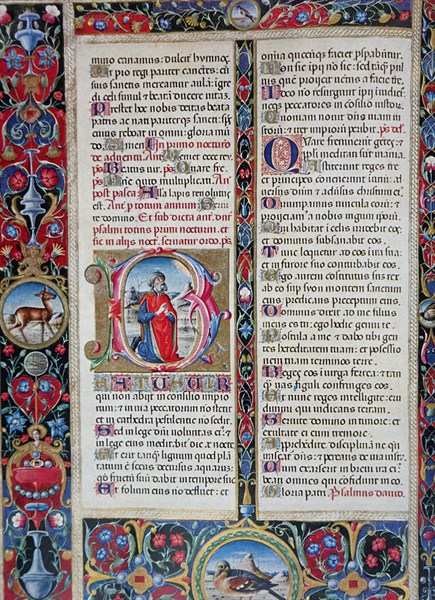 mino canamus: dulces hymnos.
Ut pio regi pariter canetes: cu
suis sanctis mereamur aula: igre
di celi simul & beata ducere vita.
Prestet hoc nobis deitas beata
patris ac nati pariterqz sancti: spi
ritus
mundo. Amen In primo nocturno
de adventu. Ant
ps Beatus vir. ps Quare fre.
ps Dne quid multiplicati. An
post pasca. Alla lapis revolutus
est. An p totum annum. Servi
te domino. Et sub dicta ant. dnr
psalmi totius primi nocturni. et
sic in alijs noct. servatur ordo. ps
B
EATUS VIR
qui non abijt in consilio impio
rum: & in via peccatorum no stetit
et in cathedra pestilentie no sedit.
Sed in lege dni voluntas ei: &
in lege eius meditabit die ac nocte
Et erit tanqz lignum quod plan
tatum e secus decursus aquarum:
qd fructu suu dabit in tempore suo
Et folium eius no defluet: et
omnia quecunqz faciet psperabunt.
Non sic impij no sic: sed tanqz pul
vis que proicit ventus a facie tre.
Ideo no resurgunt impij i iudicio
neqz peccatores in cosilio iustor.
Quoniam novit dns viam iu
storu: & iter impioru peribit. ps
Quare fremuerunt getes: &
ppli meditati sut inania.
Astiterunt reges tre et
principes convenerut i unu: ad
versus dnm & adversus christum ei
Dirumpamus vincula eoru: &
proijciam a nobis iugum ipsoru.
Qui habitat i celis irridebit eos:
et dominus subsanabit eos.
Tunc loquetur ad eos i ira sua:
et in furore suo conturbabit eos.
Ego autem costitutus sum rex
ab eo sup syon montem sanctum
eius: predicans preceptum eius.
Dominus dixit ad me filius
meus es tu: ego hodie genui te.
Postula a me & dabo tibi gen
tes hereditatem tuam: et possessio
nem tuam terminos terre.
Reges eos i virga ferrea: & tan
qz vas figuli confringes eos.
Et nunc reges intelligite: eru
dimini qui iudicatis terram.
Servite domino in timore: et
exultate ei cum tremore.
Apprehedite disciplina ne qn
irascat dns: & pereatis de via iusta.
Cum exarserit in brevi ira ei:
beati omnes qui confidunt in eo.
Gloria patri. Psalmus david.